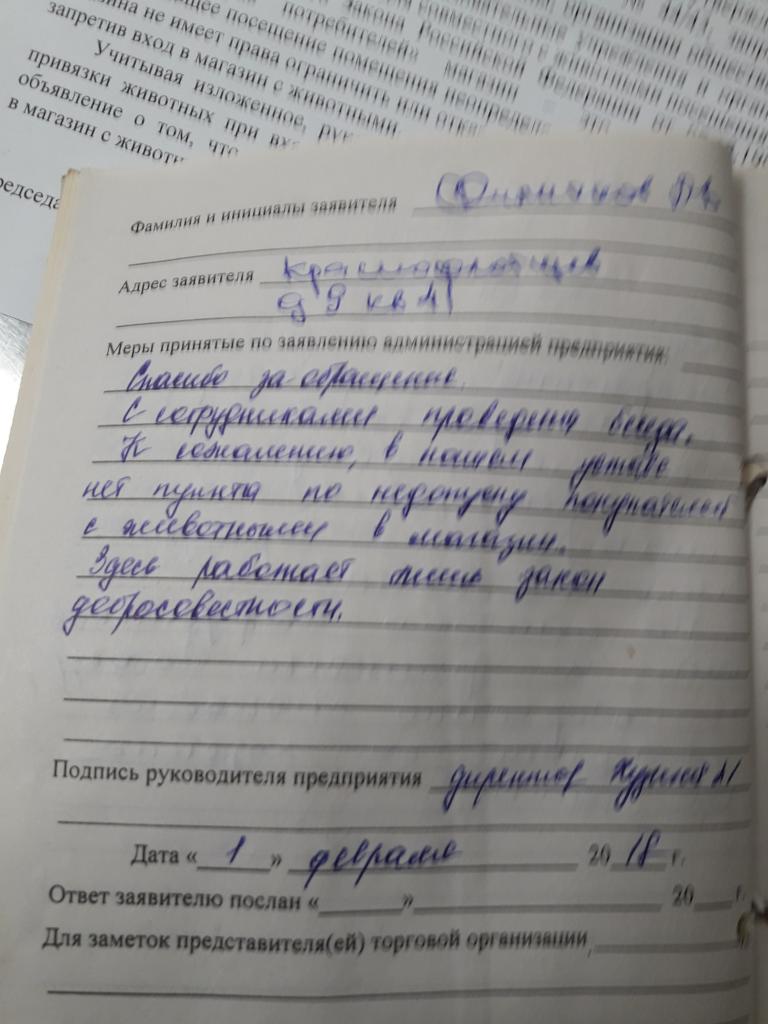 ющее посещение помещения неопределе
потребителей» магазин
закона Российской Федерации от
зина не имеет права ограничить или отка
запретив вход в магазин с животными.
Учитывая изложенное, рук
привязки животных при вх
объявление о том, что
в магазин с животн
редседа
Фамилия и инициалы заявителя
Адрес заявителя Краснофлотцев
д 9 кв 41
Меры принятые по заявлению администрацией предприятия:
Спасибо за обращение.
С сотрудниками проведена беседа.
К сожалению, в нашем уставе
нет пункта по недопуску покупателей
с животными в магазин.
Здесь работает лишь закон
добросовестности.
Подпись руководителя предприятия директор
Дата « 1 » февраля 20 18 г.
Ответ заявителю послан « » 20 г.
Для заметок представителя(ей) торговой организации